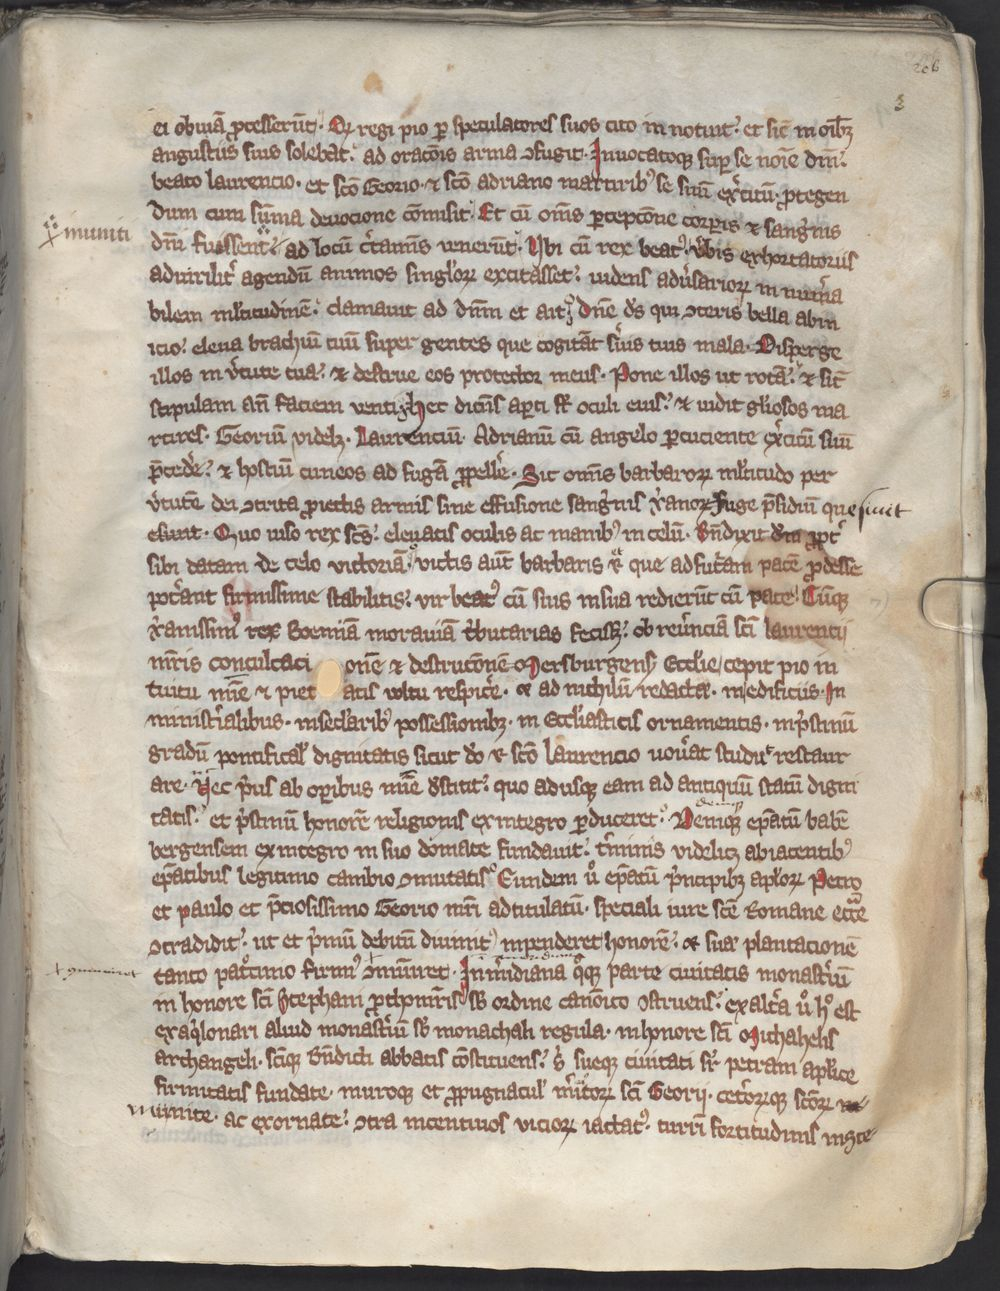 206
3
ei obuiā ꝓcesserūt. Qđ regi pio ꝑ speculatores suos cito innotuit. et sic̄ in oībꝫ
angustiis suis solebat. ad oracōis arma ↄfugit. Inuocatoqꝫ suꝑ se noīe dn̄i.
beato laurencio. et scō Georio. ⁊ scō adriano martiribꝰ se suū exꝰcitū. ꝓtegen
dum cum sūma deuocione cōmisit. Et cū om̄s ꝑcepcōne corꝑis ⁊ sangꝰnis
muniti
dn̄i fuissent. ad locū cꝰtamīs venerūt. Vbi cū rex beatꝰ vꝰbis exhortatoriis
aduirilitꝰ agendū animos singlorꝝ excitasset. uidens aduꝰsariorꝝ in numꝰa
bilem ml̓titudinē. clamauit ad dn̄m et ait. Dn̄e ds̄ qui ↄteris bella abin
icio. eleua brachiū tuū super gentes que cogitāt sꝰuis tuis mala. Disperge
illos in vꝰtute tua. ⁊ destrue eos protector meus. Pone illos ut rotā. ⁊ sic̄
stipulam an̄ faciem venti. Hec dicēs aꝑti st̄ oculi eius. ⁊ uidit gl̓iosos ma
rtires. Georiū videlꝫ. Laurenciū. Adrianū cū angelo ꝑcuciente exꝰcitū suū
p̄cedꝰe. ⁊ hostiū cuneos ad fugā ꝓpellꝰe. Sic om̄is barbarorꝝ ml̓titudo per
vꝰtutē dei ↄtrita proiectis armis sine effusione sangꝰnis xꝰanorꝝ fuge p̄sidiū quesiuit
esiuit. Quo uiso rex scs̄. eleuatis oculis ac manibꝰ in celū. bn̄dixit dn̄m ꝓptꝰ
sibi datam de celo victoriā. victis aut̄ barbaris ⁊ que ad futꝰam pacē ꝓdesse
potꝰant firmissime stabilitis. vir beatꝰ cū suis in sua redierūt cū pace. Cūqꝫ
xꝰanissimꝰ rex Boemiā morauiā tꝰbutarias fecissꝫ. ob reuꝰenciā scī laurencii
mr̄is conculcaci onē ⁊ destruccōnē Mersburgensꝭ Eccl̓ie cepit pio in
tuitu mīe ⁊ piet atis vultu respicꝰe. ⁊ ad nichilū redactā. in edificiis. In
ministꝰialibus. in sec̄laribꝰ possessionibꝫ. in Eccl̓iasticis ornamentis. in pꝰstinū
gradū pontificalꝭ dignitatis sicut dō ⁊ scō laurencio uouꝰat studuit restaur
are. Nec pꝰus ab oꝑibus mīe dꝰstitit. quo adusqꝫ eam ad antiquū statū digni
denique
tatis. et pꝰstinū honorē religionis ex integro ꝑduceret. Deniqꝫ ep̄atū babē
bergensem ex integro in suo domate fundauit. tꝰminis videlicꝫ abiacentibꝰ
ep̄atibus legitimo cambio ↄmutatis. Eundem uꝰ ep̄atū pꝰncipibꝫ apl̓orꝝ Petro
et paulo et pꝰciosissimo Georio mr̄i ad titulatū. speciali iure scē Romane ecc̄e
ↄtradidit. ut et pꝰmū debitū diuinitꝰ inpenderet honorē. ⁊ suā plantacionē
ↄmuniret
tanto patꝰcinio firmiꝰ ↄmūiret. In mꝰidiana qꝫ parte ciuitatis monastꝰiū
in honore scī Stephani ꝓthomr̄is sb̄ ordine canōico ↄstruens. ex altꝰa uꝰ hꝰ est
ex aqꝰlonari aliud monastꝰiū sb̄ monachali regula. in honore scī Michahelis
archangeli. scīqꝫ bn̄dicti abbatis cōstituens. sueqꝫ ciuitati sr̄ petram apl̓ice
firmitatis fundate. muroqꝫ et ꝓpugnaculꝭ mꝰitorꝝ scī Georij. cetꝰorꝝqꝫ scōrꝝ
munite. ac exornate. ↄtra incentiuos viciorꝝ iactatꝰ. turrī fortitudinis in